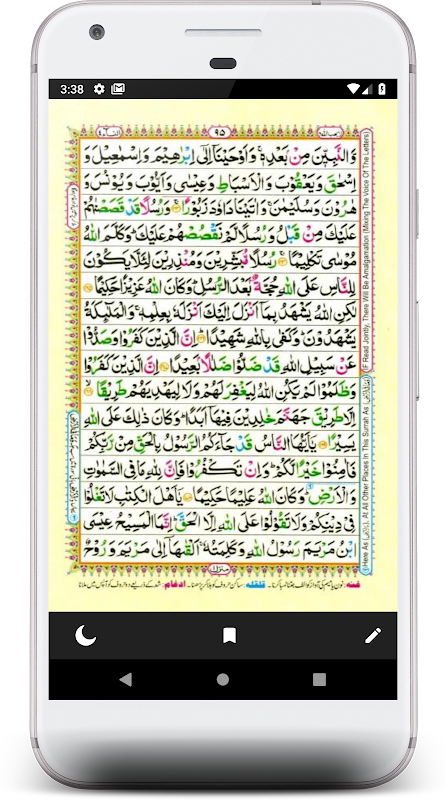 3:38
النسآء ٤
٩٥
لا يحب الله ٦
وَالنَّبِيّٖنَ مِنْۢ بَعْدِهٖ ۚ وَاَوْحَيْنَاۤ اِلٰٓى اِبْرٰهِيْمَ وَاِسْمٰعِيْلَ وَ
اِسْحٰقَ وَيَعْقُوْبَ وَالْاَسْبَاطِ وَعِيْسٰى وَاَيُّوْبَ وَيُوْنُسَ وَ
هٰرُوْنَ وَسُلَيْمٰنَ ۚ وَاٰتَيْنَا دَاوٗدَ زَبُوْرًا ۚ وَرُسُلًا قَدْ قَصَصْنٰهُمْ
عَلَيْكَ مِنْ قَبْلُ وَرُسُلًا لَّمْ نَقْصُصْهُمْ عَلَيْكَ ۗ وَكَلَّمَ اللّٰهُ
مُوْسٰى تَكْلِيْمًا ۚ رُسُلًا مُّبَشِّرِيْنَ وَمُنْذِرِيْنَ لِئَلَّا يَكُوْنَ
لِلنَّاسِ عَلَى اللّٰهِ حُجَّةٌۢ بَعْدَ الرُّسُلِ ۗ وَكَانَ اللّٰهُ عَزِيْزًا حَكِيْمًا
لٰكِنِ اللّٰهُ يَشْهَدُ بِمَاۤ اَنْزَلَ اِلَيْكَ اَنْزَلَهٗ بِعِلْمِهٖ ۚ وَالْمَلٰٓئِكَةُ
يَشْهَدُوْنَ ۗ وَكَفٰى بِاللّٰهِ شَهِيْدًا ۗ اِنَّ الَّذِيْنَ كَفَرُوْا وَصَدُّوْا
عَنْ سَبِيْلِ اللّٰهِ قَدْ ضَلُّوْا ضَلٰلًاۢ بَعِيْدًا اِنَّ الَّذِيْنَ كَفَرُوْا
وَظَلَمُوْا لَمْ يَكُنِ اللّٰهُ لِيَغْفِرَ لَهُمْ وَلَا لِيَهْدِيَهُمْ طَرِيْقًا ۙ
اِلَّا طَرِيْقَ جَهَنَّمَ خٰلِدِيْنَ فِيْهَاۤ اَبَدًا ۗ وَكَانَ ذٰلِكَ عَلَى اللّٰهِ
يَسِيْرًا يٰٓاَيُّهَا النَّاسُ قَدْ جَآءَكُمُ الرَّسُوْلُ بِالْحَقِّ مِنْ رَّبِّكُمْ
فَاٰمِنُوْا خَيْرًا لَّكُمْ ۗ وَاِنْ تَكْفُرُوْا فَاِنَّ لِلّٰهِ مَا فِى السَّمٰوٰتِ
وَالْاَرْضِ ۗ وَكَانَ اللّٰهُ عَلِيْمًا حَكِيْمًا يٰٓاَهْلَ الْكِتٰبِ لَا تَغْلُوْا
فِيْ دِيْنِكُمْ وَلَا تَقُوْلُوْا عَلَى اللّٰهِ اِلَّا الْحَقَّ ۗ اِنَّمَا الْمَسِيْحُ عِيْسَى
ابْنُ مَرْيَمَ رَسُوْلُ اللّٰهِ وَكَلِمَتُهٗ ۚ اَلْقٰىهَاۤ اِلٰى مَرْيَمَ وَرُوْحٌ
منزل ١
(If Read Jointly, There Will Be Amalgamation (Mixing The Voice Of The Letters)
(Here As At All Other Places In This Surrah As